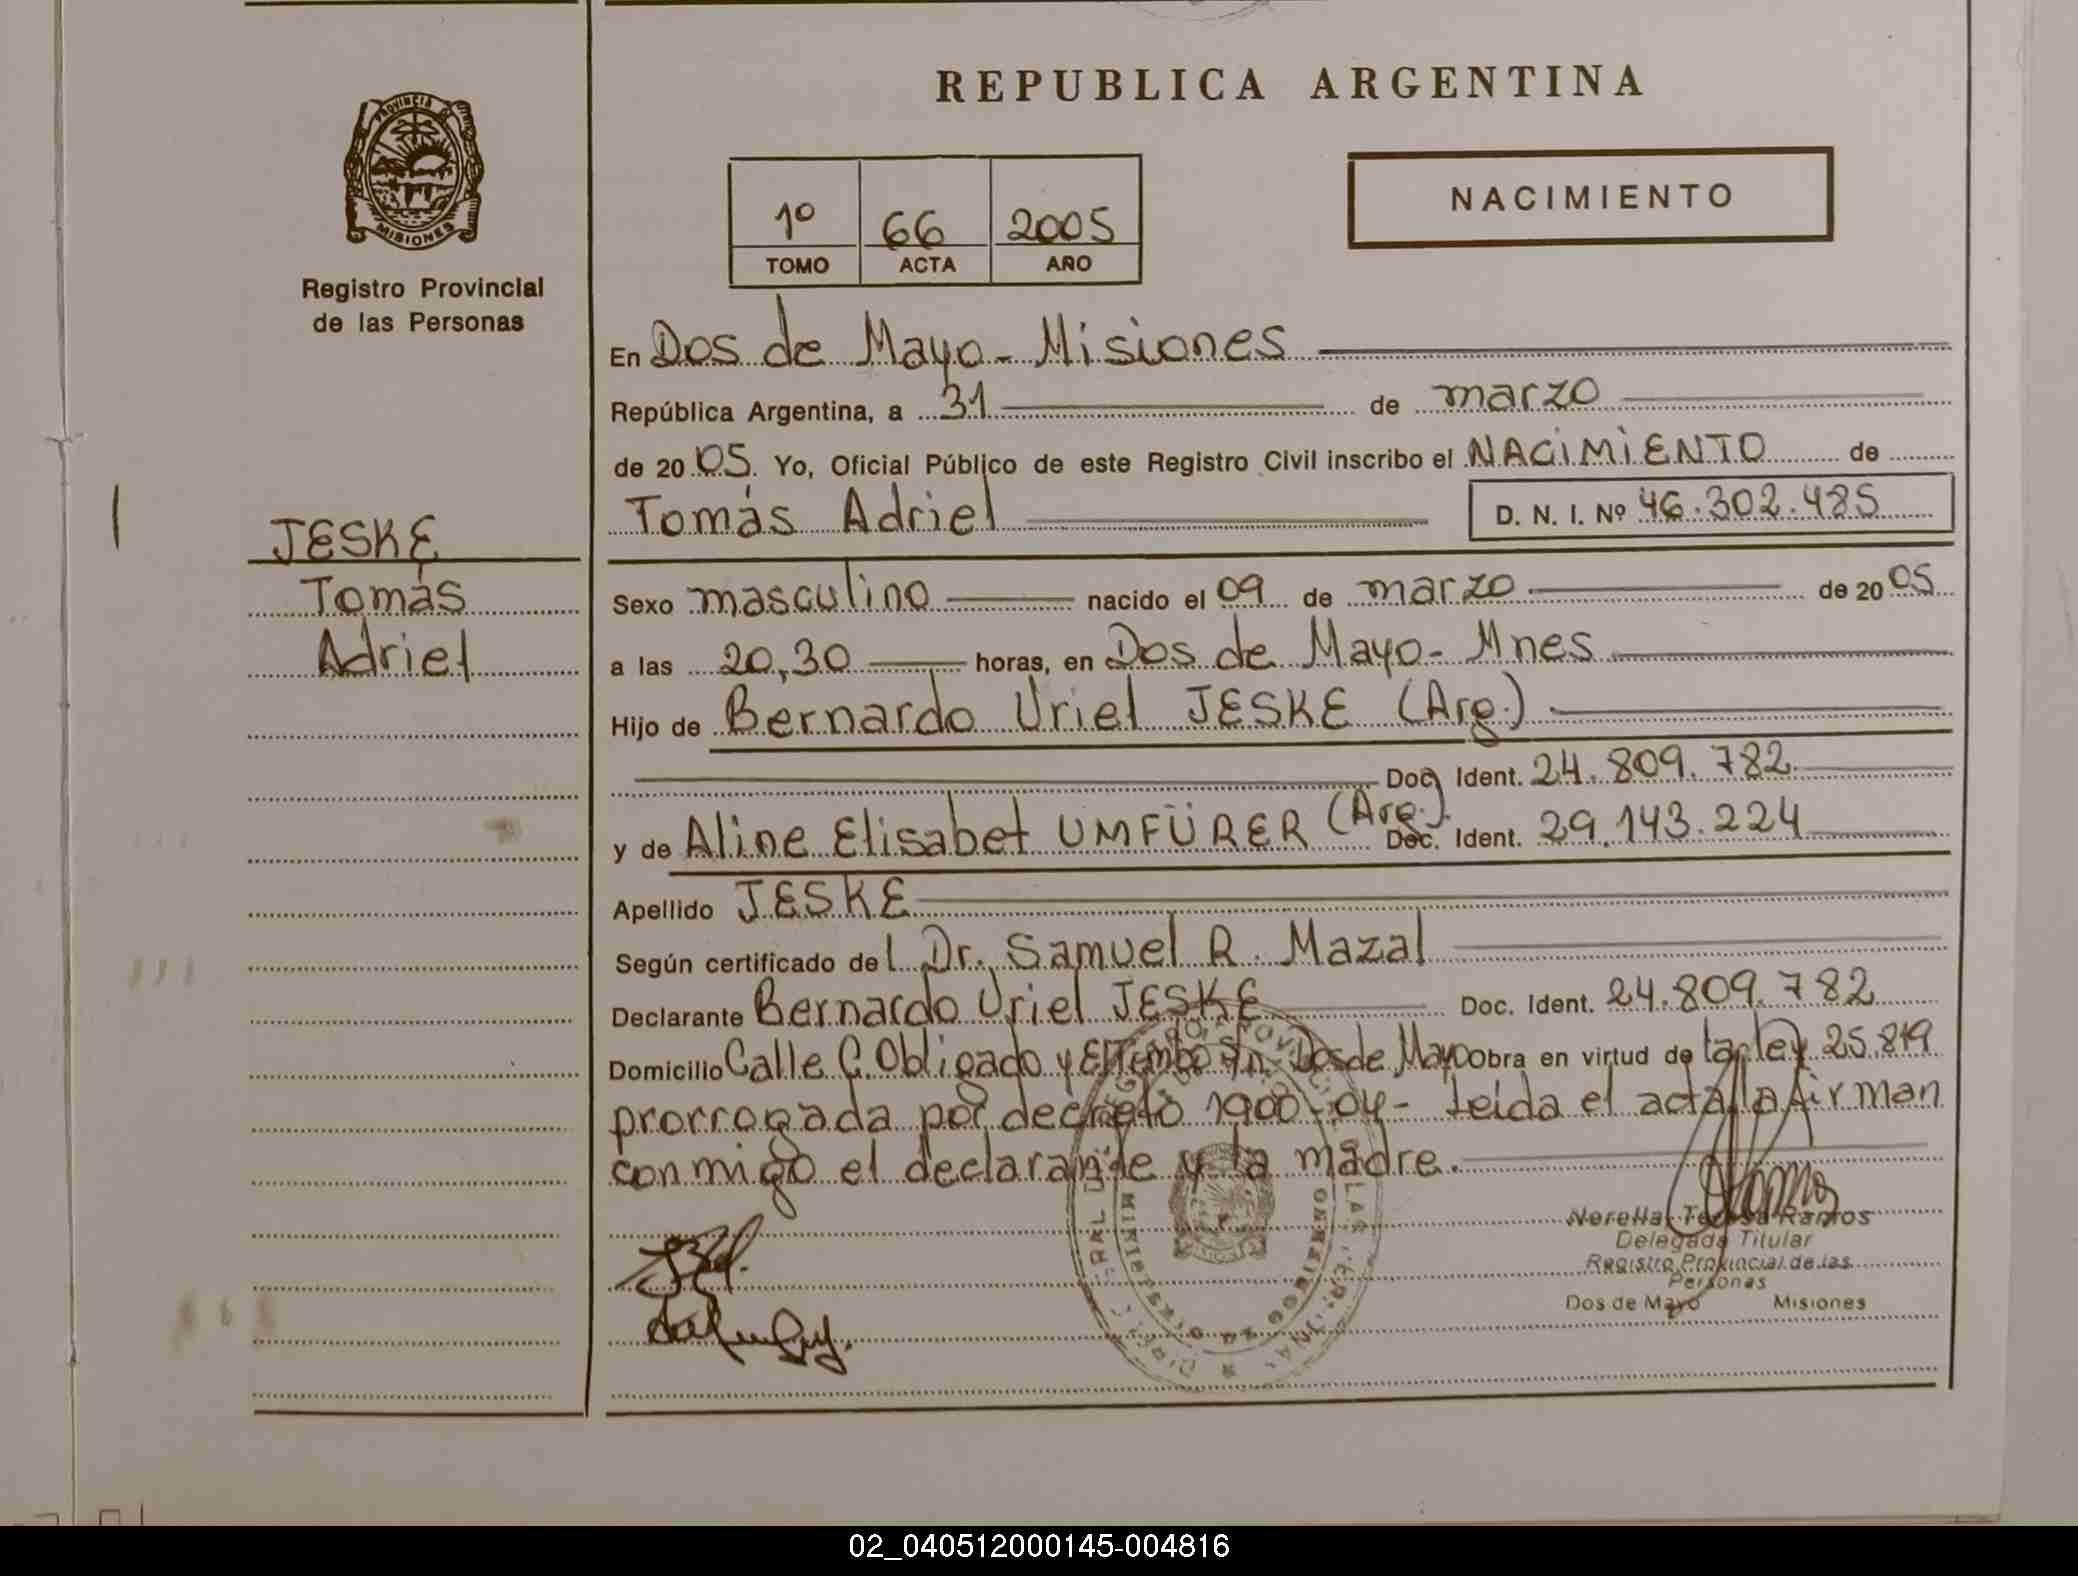 REPUBLICA ARGENTINA
PROVINCIA DE
MISIONES
Registro Provincial
de las Personas
NACIMIENTO
1º 66 2005
TOMO ACTA AÑO
En Dos de Mayo - Misiones
República Argentina, a 31 de marzo
de 2005. Yo, Oficial Público de este Registro Civil inscribo el NACIMIENTO de
Tomás Adriel D. N. I. Nº 46.302.485
JESKE
Tomás
Adriel
Sexo masculino nacido el 09 de marzo de 2005
a las 20,30 horas, en Dos de Mayo - Mnes
Hijo de Bernardo Uriel JESKE (Arg.)
Doc. Ident. 24.809.782
y de Aline Elisabet UMFÜRER (Arg.) Doc. Ident. 29.143.224
Apellido JESKE
Según certificado del Dr. Samuel R. Mazal
Declarante Bernardo Uriel JESKE Doc. Ident. 24.809.782
Domicilio Calle C. Obligado y El S/n. Dos de Mayo obra en virtud de la ley 25.819
prorrogada por decreto 1900-04- Leída el acta la firman
conmigo el declarante y la madre.
Nerella Teresa Ramos
Delegada Titular
Registro Provincial de las
Personas
Dos de Mayo Misiones
02_040512000145-004816